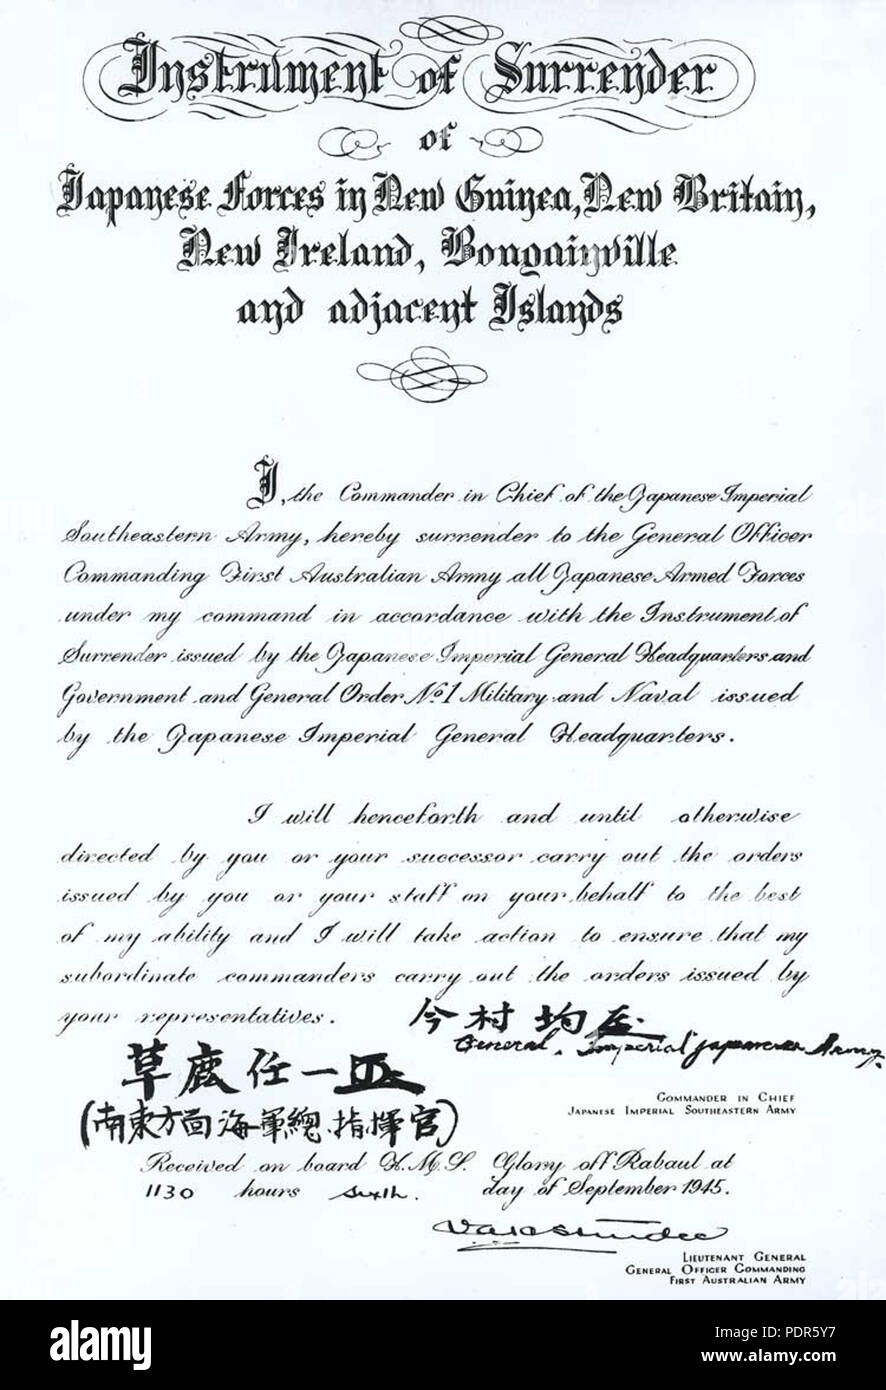 Instrument of Surrender
of
Japanese Forces in New Guinea, New Britain,
New Ireland, Bougainville
and adjacent Islands
I, the Commander in Chief of the Japanese Imperial
Southeastern Army, hereby surrender to the General Officer
Commanding First Australian Army all Japanese Armed Forces
under my command in accordance with the Instrument of
Surrender issued by the Japanese Imperial General Headquarters and
Government and General Order No. 1 Military and Naval issued
by the Japanese Imperial General Headquarters.
I will henceforth and until otherwise
directed by you or your successor carry out the orders
issued by you or your staff on your behalf to the best
of my ability and I will take action to ensure that my
subordinate commanders carry out the orders issued by
your representatives.
今村均
General, Imperial Japanese Army.
草鹿任一
(南東方面海軍總指揮官)
COMMANDER IN CHIEF
JAPANESE IMPERIAL SOUTHEASTERN ARMY
Received on board H.M.S. Glory off Rabaul at
1130 hours sixth day of September 1945.
LIEUTENANT GENERAL
GENERAL OFFICER COMMANDING
FIRST AUSTRALIAN ARMY
alamy
Image ID: PDR5Y7
www.alamy.com